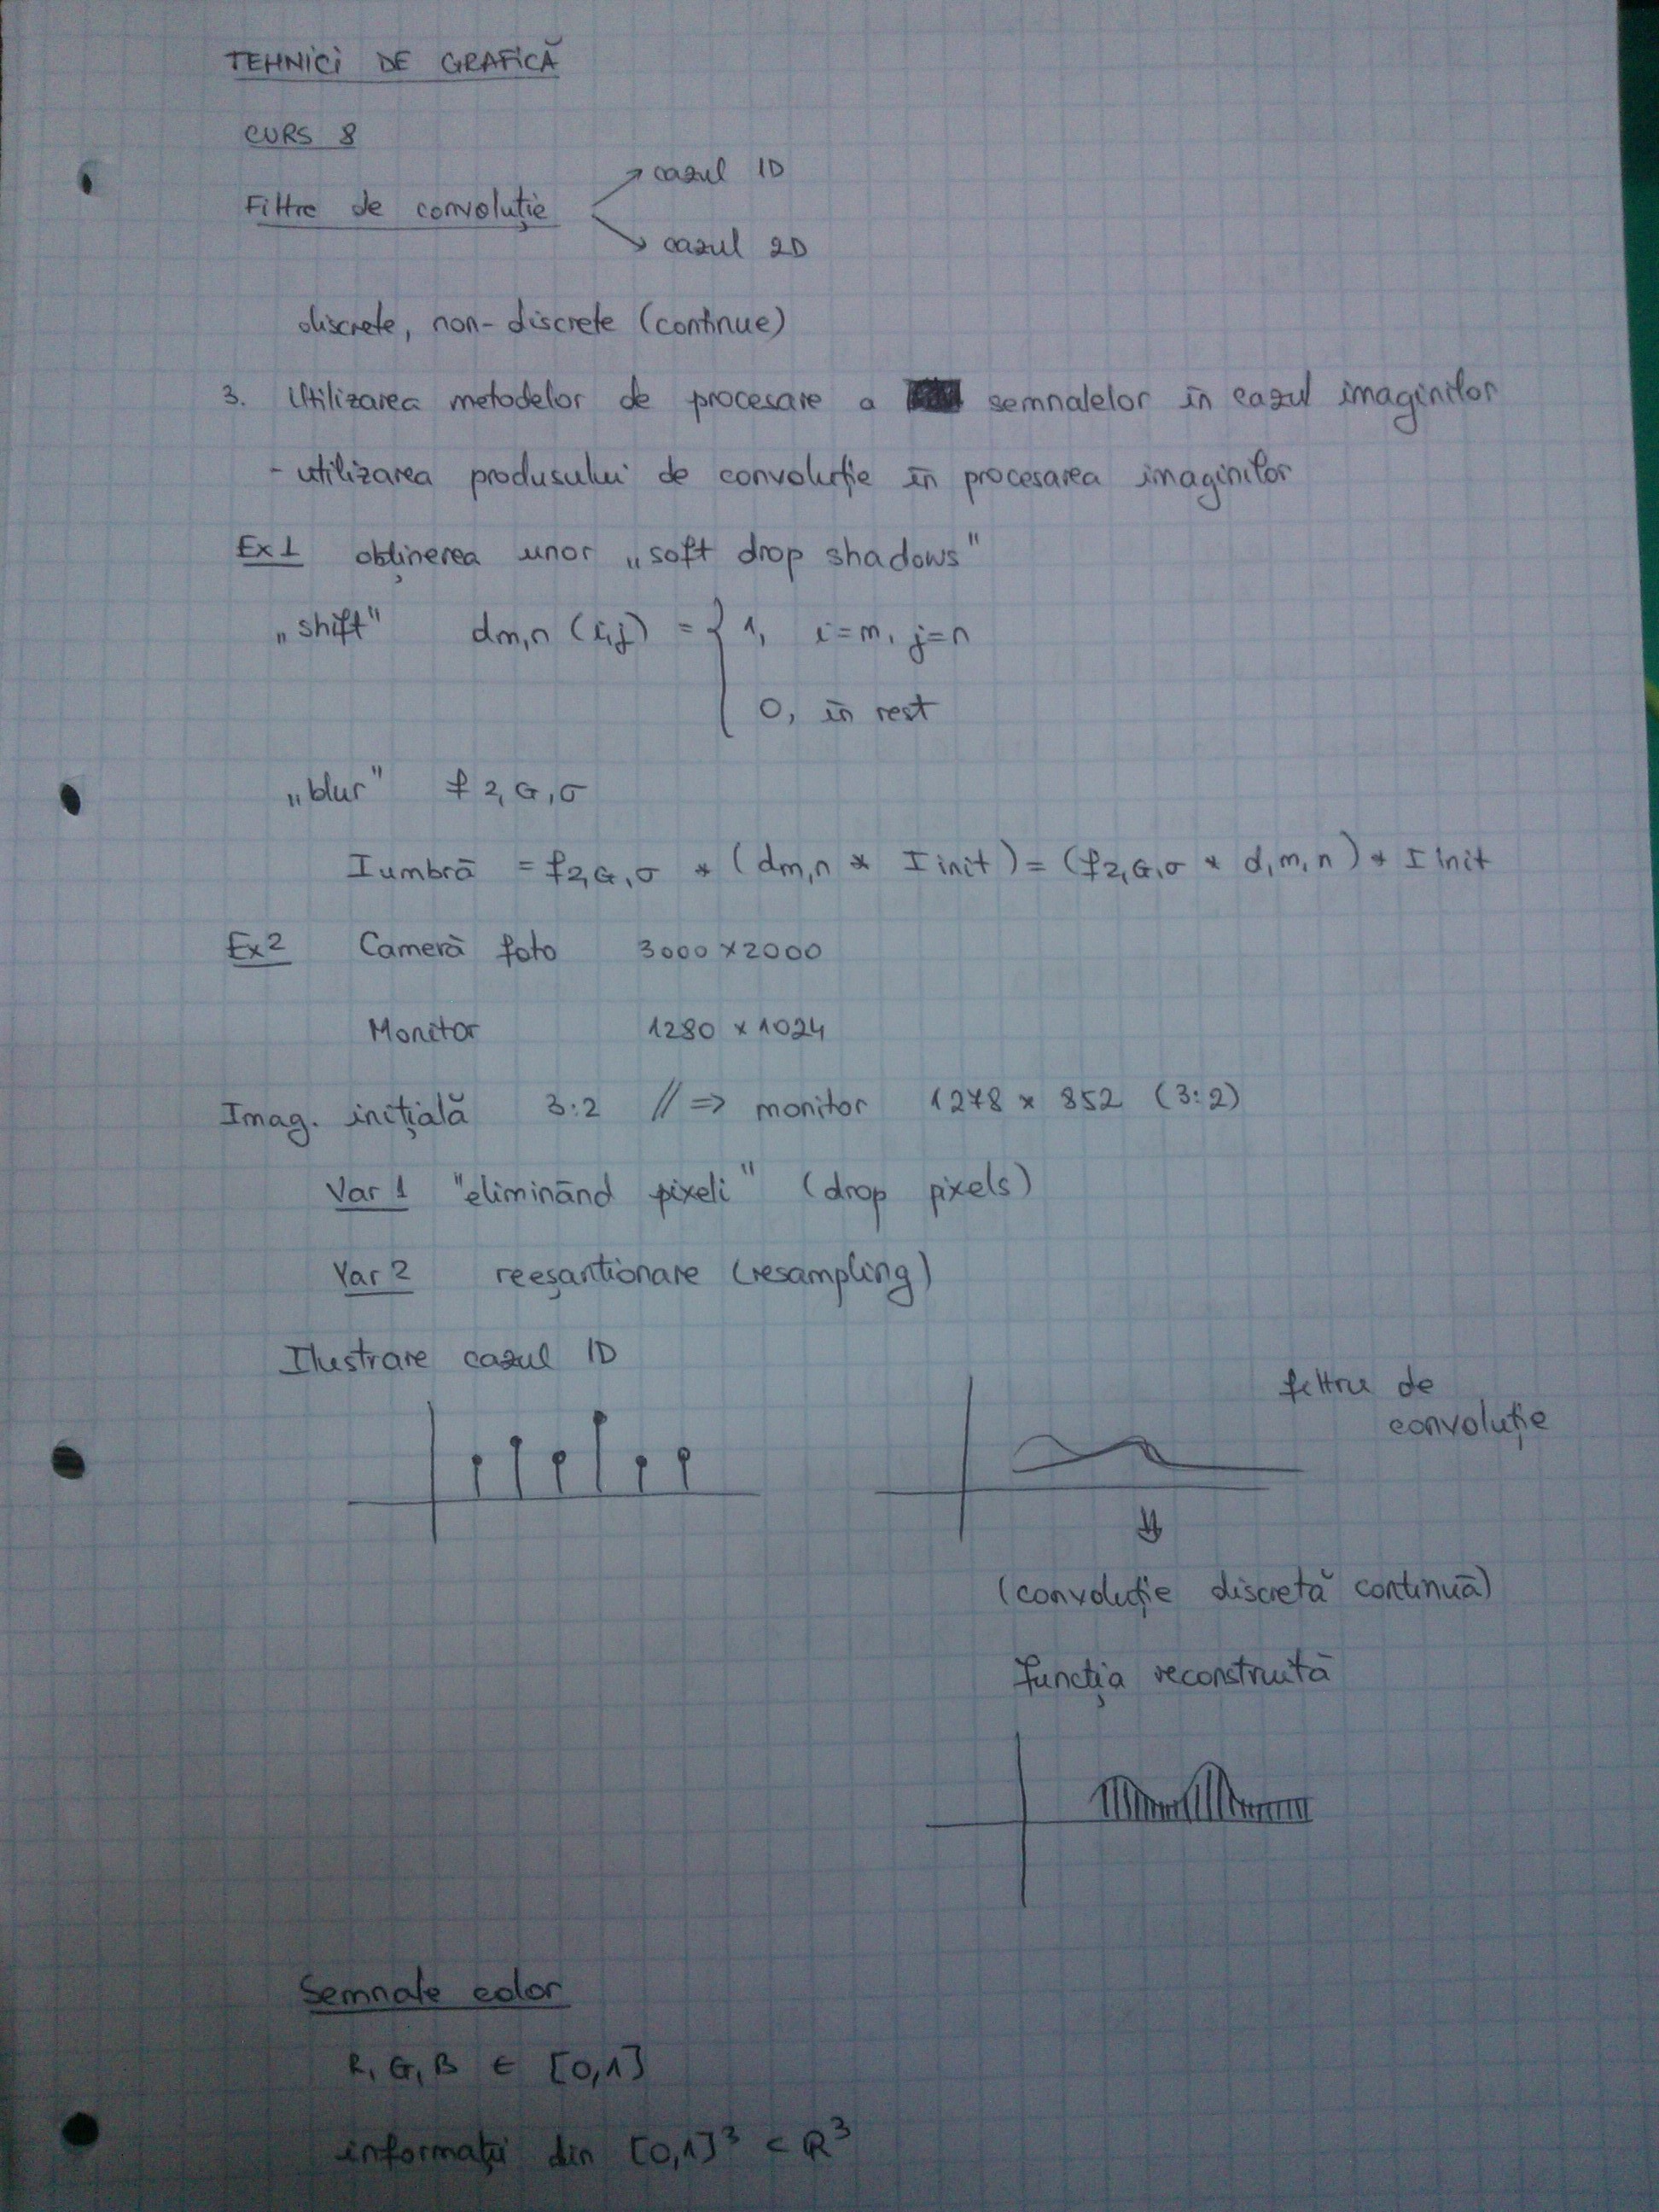 TEHNICI DE GRAFICĂ
CURS 8
cazul 1D
Filtre de convoluție
cazul 2D
discrete, non-discrete (continue)
3. Utilizarea metodelor de procesare a semnalelor în cazul imaginilor
- utilizarea produsului de convoluție în procesarea imaginilor
Ex1 obținerea unor „soft drop shadows"
„shift" dm,n (i,j) = { 1, i=m, j=n
0, în rest
„blur" f 2,G,σ
I umbră = f2,G,σ * (dm,n * I init) = (f2,G,σ * d,m,n) * I init
Ex2 Cameră foto 3000 x 2000
Monitor 1280 x 1024
Imag. inițială 3:2 // => monitor 1278 x 852 (3:2)
Var 1 "eliminând pixeli" (drop pixels)
Var 2 reeșantionare (resampling)
Ilustrare cazul 1D
filtru de
convoluție
(convoluție discretă continuă)
funcția reconstruită
Semnale color
R, G, B ∈ [0,1]
informații din [0,1]³ ⊂ R³